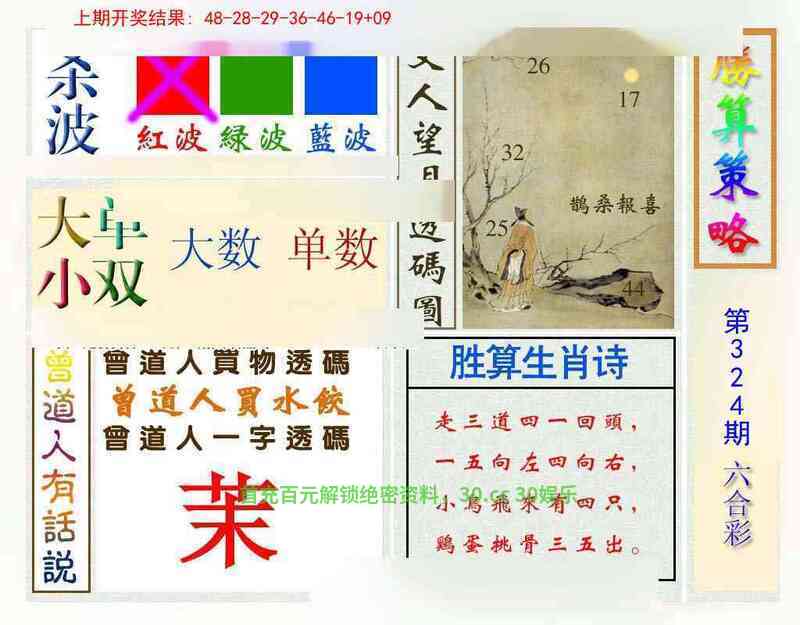 上期开奖结果: 48-28-29-36-46-19+09
杀波
紅波 緑波 藍波
大小
单双
大数 单数
人望月透碼圖
26
17
32
鵲桑報喜
25
44
勝算策略
第324期六合彩
曾道人有話説
曾道人買物透碼
曾道人買水餃
曾道人一字透碼
茉
胜算生肖诗
走三道四一回頭，
一五向左四向右，
小鳥飛來有四只，
鷄蛋挑骨三五出。
首充百元解锁绝密资料：30.cc 30娱乐